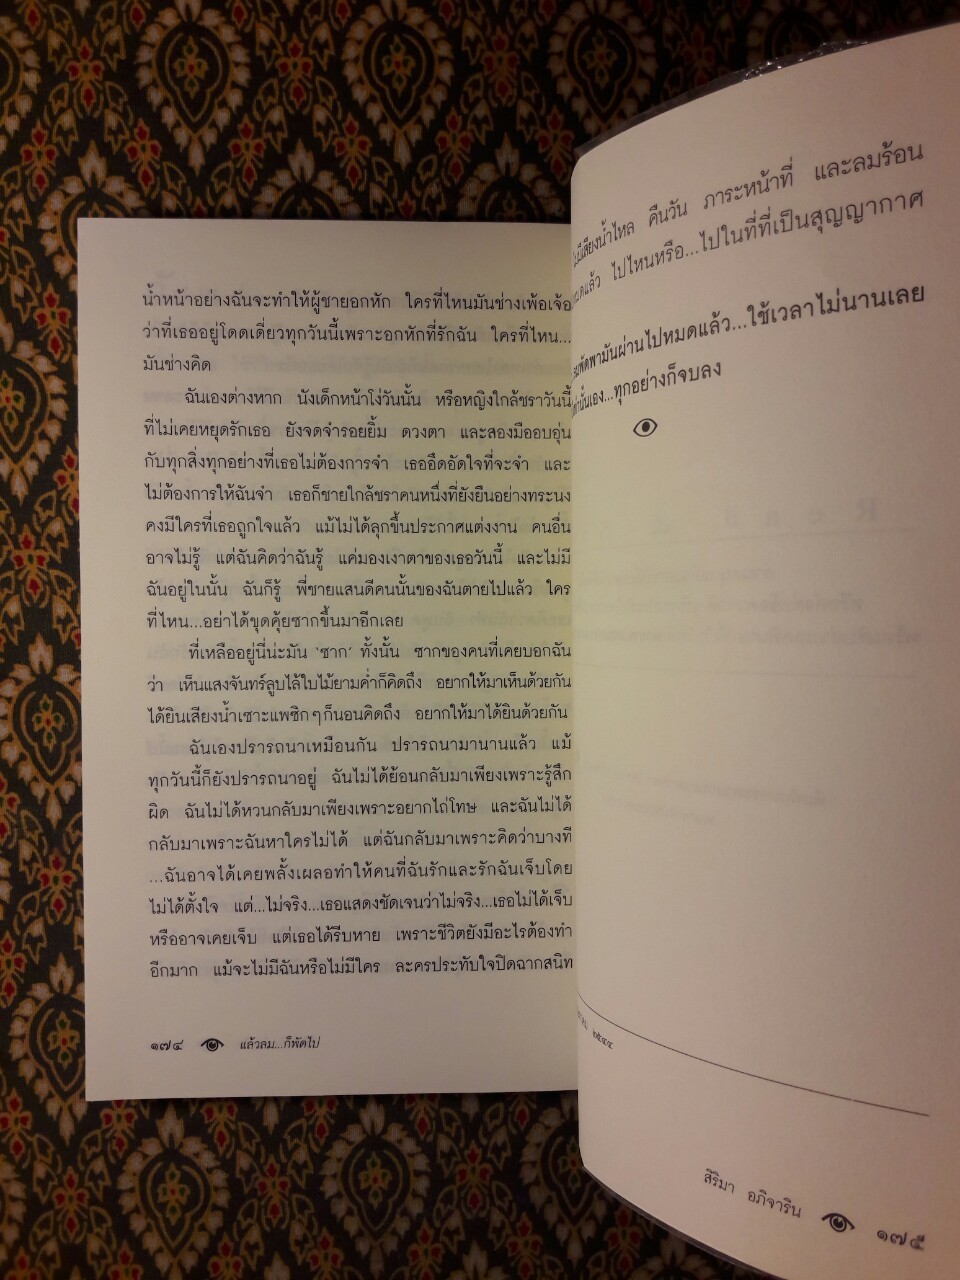 น้ำหน้าอย่างฉันจะทำให้ผู้ชายอกหัก ใครที่ไหนมันช่างเพ้อเจ้อ
ว่าที่เธออยู่โดดเดี่ยวทุกวันนี้เพราะอกหักที่รักฉัน ใครที่ไหน...
มันช่างคิด
ฉันเองต่างหาก นังเด็กหน้าโง่วันนั้น หรือหญิงใกล้ชราวันนี้
ที่ไม่เคยหยุดรักเธอ ยังจดจำรอยยิ้ม ดวงตา และสองมืออบอุ่น
กับทุกสิ่งทุกอย่างที่เธอไม่ต้องการจำ เธออึดอัดใจที่จะจำ และ
ไม่ต้องการให้ฉันจำ เธอก็ชายใกล้ชราคนหนึ่งที่ยังยืนอย่างทระนง
คงมีใครที่เธอถูกใจแล้ว แม้ไม่ได้ลุกขึ้นประกาศแต่งงาน คนอื่น
อาจไม่รู้ แต่ฉันคิดว่าฉันรู้ แค่มองเงาตาของเธอวันนี้ และไม่มี
ฉันอยู่ในนั้น ฉันก็รู้ พี่ชายแสนดีคนนั้นของฉันตายไปแล้ว ใคร
ที่ไหน...อย่าได้ขุดคุ้ยซากขึ้นมาอีกเลย
ที่เหลืออยู่นี่น่ะมัน 'ซาก' ทั้งนั้น ซากของคนที่เคยบอกฉัน
ว่า เห็นแสงจันทร์ลูบไล้ใบไม้ยามค่ำก็คิดถึง อยากให้มาเห็นด้วยกัน
ได้ยินเสียงน้ำเซาะแพซิกๆก็นอนคิดถึง อยากให้มาได้ยินด้วยกัน
ฉันเองปรารถนาเหมือนกัน ปรารถนามานานแล้ว แม้
ทุกวันนี้ก็ยังปรารถนาอยู่ ฉันไม่ได้ย้อนกลับมาเพียงเพราะรู้สึก
ผิด ฉันไม่ได้หวนกลับมาเพียงเพราะอยากไถ่โทษ และฉันไม่ได้
กลับมาเพราะฉันหาใครไม่ได้ แต่ฉันกลับมาเพราะคิดว่าบางที
...ฉันอาจได้เคยพลั้งเผลอทำให้คนที่ฉันรักและรักฉันเจ็บโดย
ไม่ได้ตั้งใจ แต่...ไม่จริง...เธอแสดงชัดเจนว่าไม่จริง...เธอไม่ได้เจ็บ
หรืออาจเคยเจ็บ แต่เธอได้รีบหาย เพราะชีวิตยังมีอะไรต้องทำ
อีกมาก แม้จะไม่มีฉันหรือไม่มีใคร ละครประทับใจปิดฉากสนิท
๑๗๔ แล้วลม...ก็พัดไป
มีเสียงน้ำไหล คืนวัน ภาระหน้าที่ และลมร้อน
แล้ว ไปไหนหรือ...ไปในที่ที่เป็นสุญญากาศ
พัดพามันผ่านไปหมดแล้ว...ใช้เวลาไม่นานเลย
เท่านั้นเอง...ทุกอย่างก็จบลง
๒๕๔๔
สิริมา อภิจาริน ๑๗๕